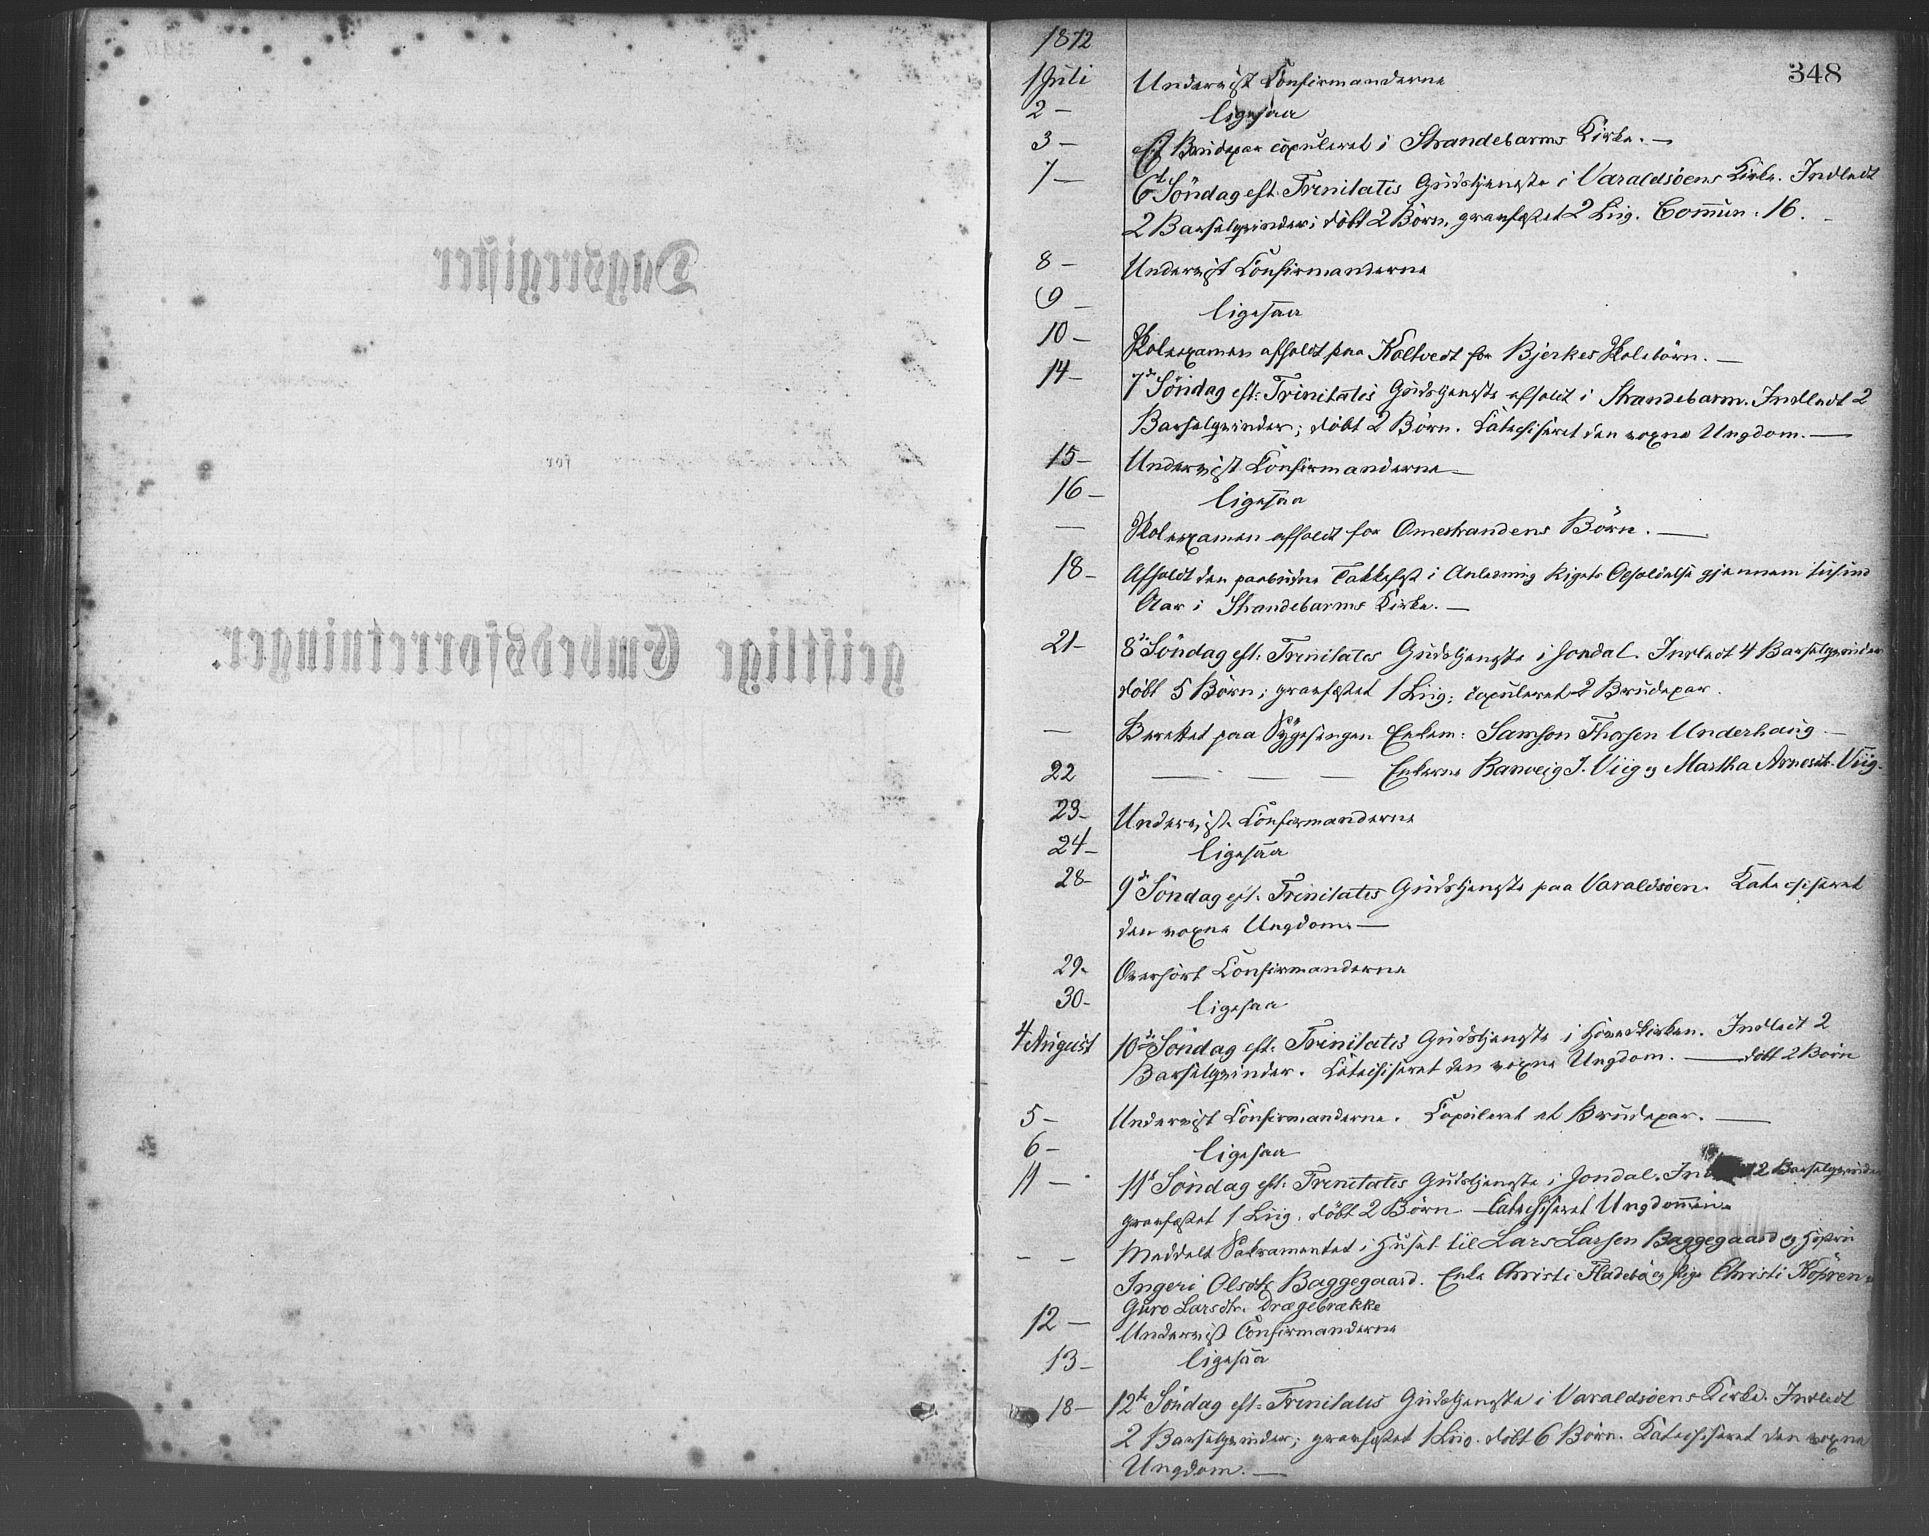 Dagsregister
for
geistlige Embedsforretninger.
348
1872
1 Juli Underviist Confirmanderne
2 — ligesaa
3 — Et Brudepar copuleret i Strandebarms Kirke. —
7 — 6t Söndag eft. Trinitatis Gudstjeneste i Varaldsöens Kirke. Indledt
2 Barselqvinder; döbt 2 Börn, græsfæstet 2 Liig. Commun. 16.
8 — Underviist Confirmanderne
9 — ligesaa
10 — Skolexamen afholdt paa Koltvedt for Bjerkes Skolebörn. —
14 — 7de Söndag eft: Trinitatis Gudstjeneste afholdt i Strandebarm. Indledt 2
Barselqvinder; döbt 2 Börn. Catechiseret den voxne Ungdom. —
15 — Underviist Confirmanderne —
16 — ligesaa
— Skolexamen afholdt for Omestrandens Börn. —
18 — Afholdt den paabudne Takkefest i Anledning Rigets Opholdelse gjennem tusind
Aar i Strandebarms Kirke. —
21 — 8de Söndag eft: Trinitatis Gudstjeneste i Jondal. Indledt 4 Barselqvinder
döbt 5 Börn; græsfæstet 1 Liig; copuleret 2 Brudepar.
— Berettet paa Sygesengen Enkem: Samson Thosen Underhaug. —
22 — — — Enkerne Ranveig J. Viig og Martha Arnesdt. Viig.
23 — Underviist Confirmanderne
24 — ligesaa
28 — 9de Söndag eft. Trinitatis Gudstjeneste paa Varaldsöen. Catechiseret
den voxne Ungdom. —
29 — Overhört Confirmanderne
30 — ligesaa
4 August 10de Söndag eft: Trinitatis Gudstjeneste i Hovedkirken. Indledt 2
Barselqvinder. Catechiseret den voxne Ungdom. — döbt 2 Börn
5 — Underviist Confirmanderne. Copuleret et Brudepar. —
6 — ligesaa
11 — 11te Söndag eft: Trinitatis Gudstjeneste i Jondal. 2 Barselqvinder
græsfæstet 1 Liig. döbt 2 Börn — Catechiseret Ungdommen.
— — Meddelt Sakramentet i Huset til Lars Larsen Baggegaard og Hustru
Ingeri Olsdtr Baggegaard. Enke Christi Fladebö og Pige Christi
Guro Larsdtr. Drægebrække
12 — Underviist Confirmanderne
13 — ligesaa
18 — 12te Söndag eft: Trinitatis Gudstjeneste i Varaldsöens Kirke. Indledt
2 Barselqvinder; græsfæstet 1 Liig. döbt 6 Börn. Catechiseret den voxne
Ungdom. —